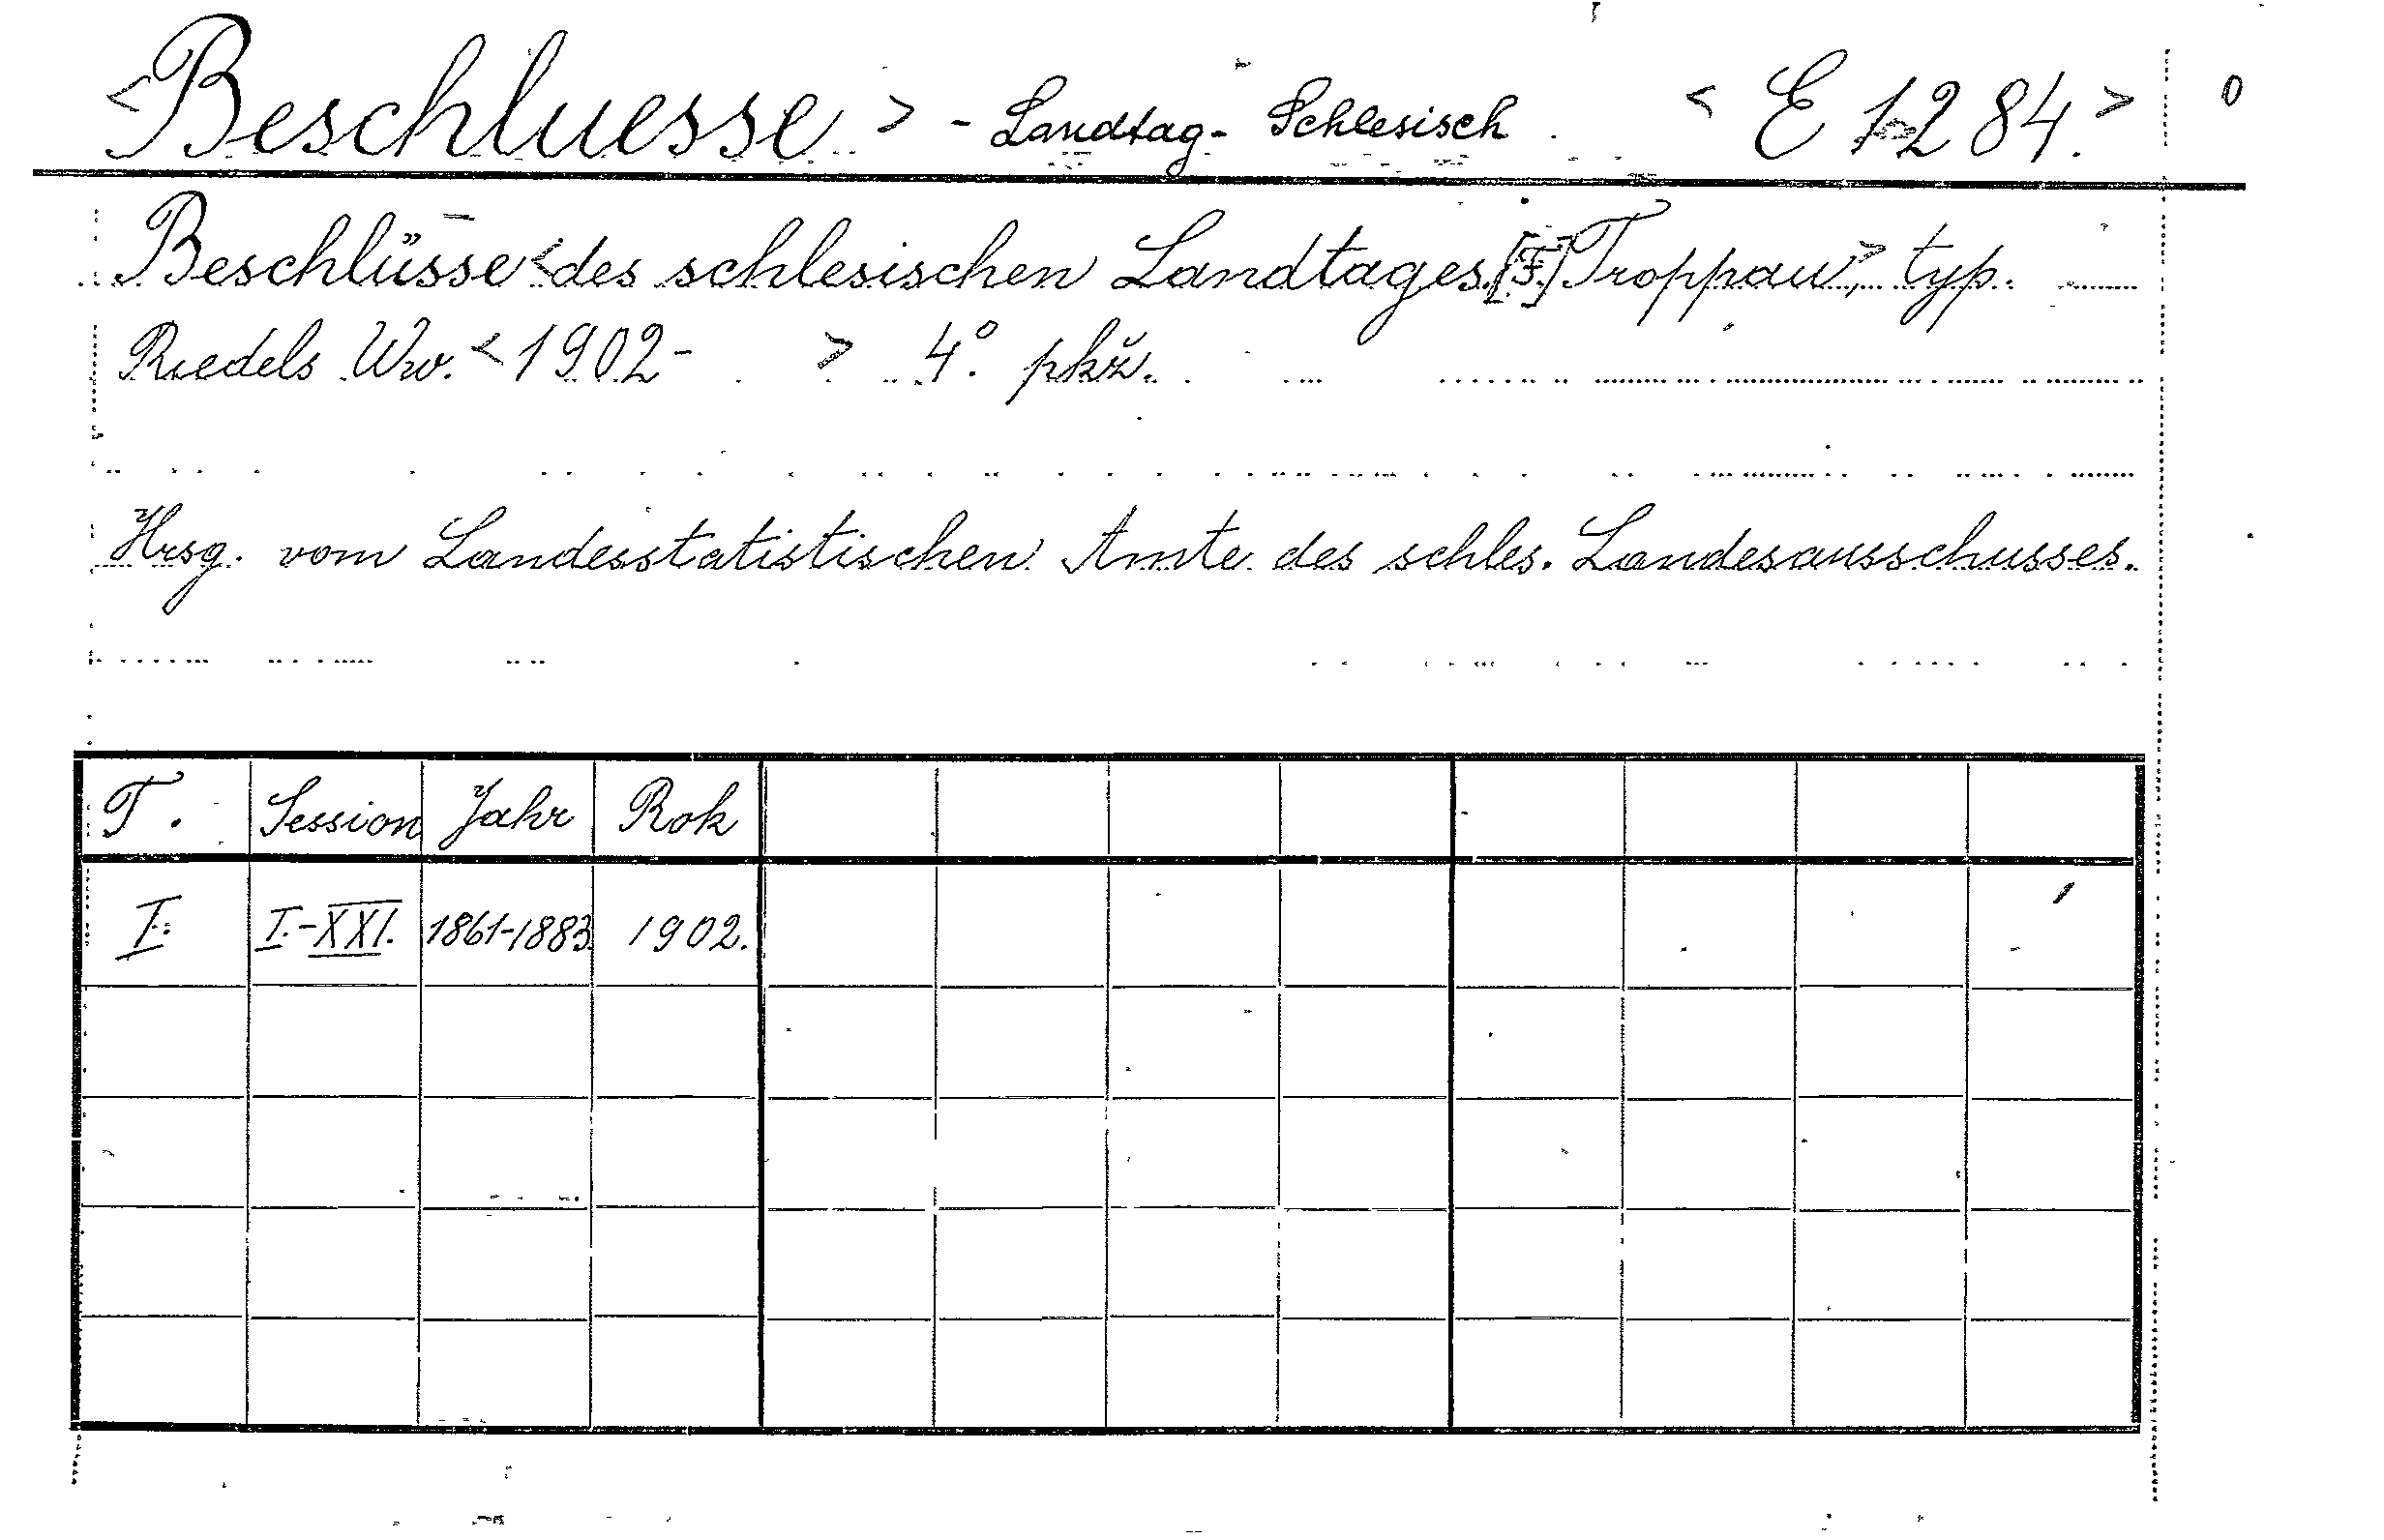 <Beschluesse> - Landtag - Schlesisch <E 1284.> 0
Beschlüsse <des schlesischen Landtages. [I.] Troppau>, typ.
Riedels Ww. <1902- > 4° pkž.
Hrsg. vom Landesstatistischen Amte des schles. Landesausschusses.
T. Session Jahr Rok
I. I.-XXI. 1861-1883. 1902.